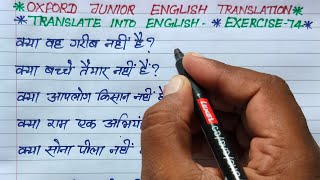 *OXFORD JUNIOR ENGLISH TRANSLATION*
*TRANSLATE INTO ENGLISH - *EXERCISE-74*
क्या वह गरीब नहीं है?
क्या बच्चे तैयार नहीं हैं?
क्या आपलोग किसान नहीं हैं
क्या राम एक
क्या सोना पीला नहीं